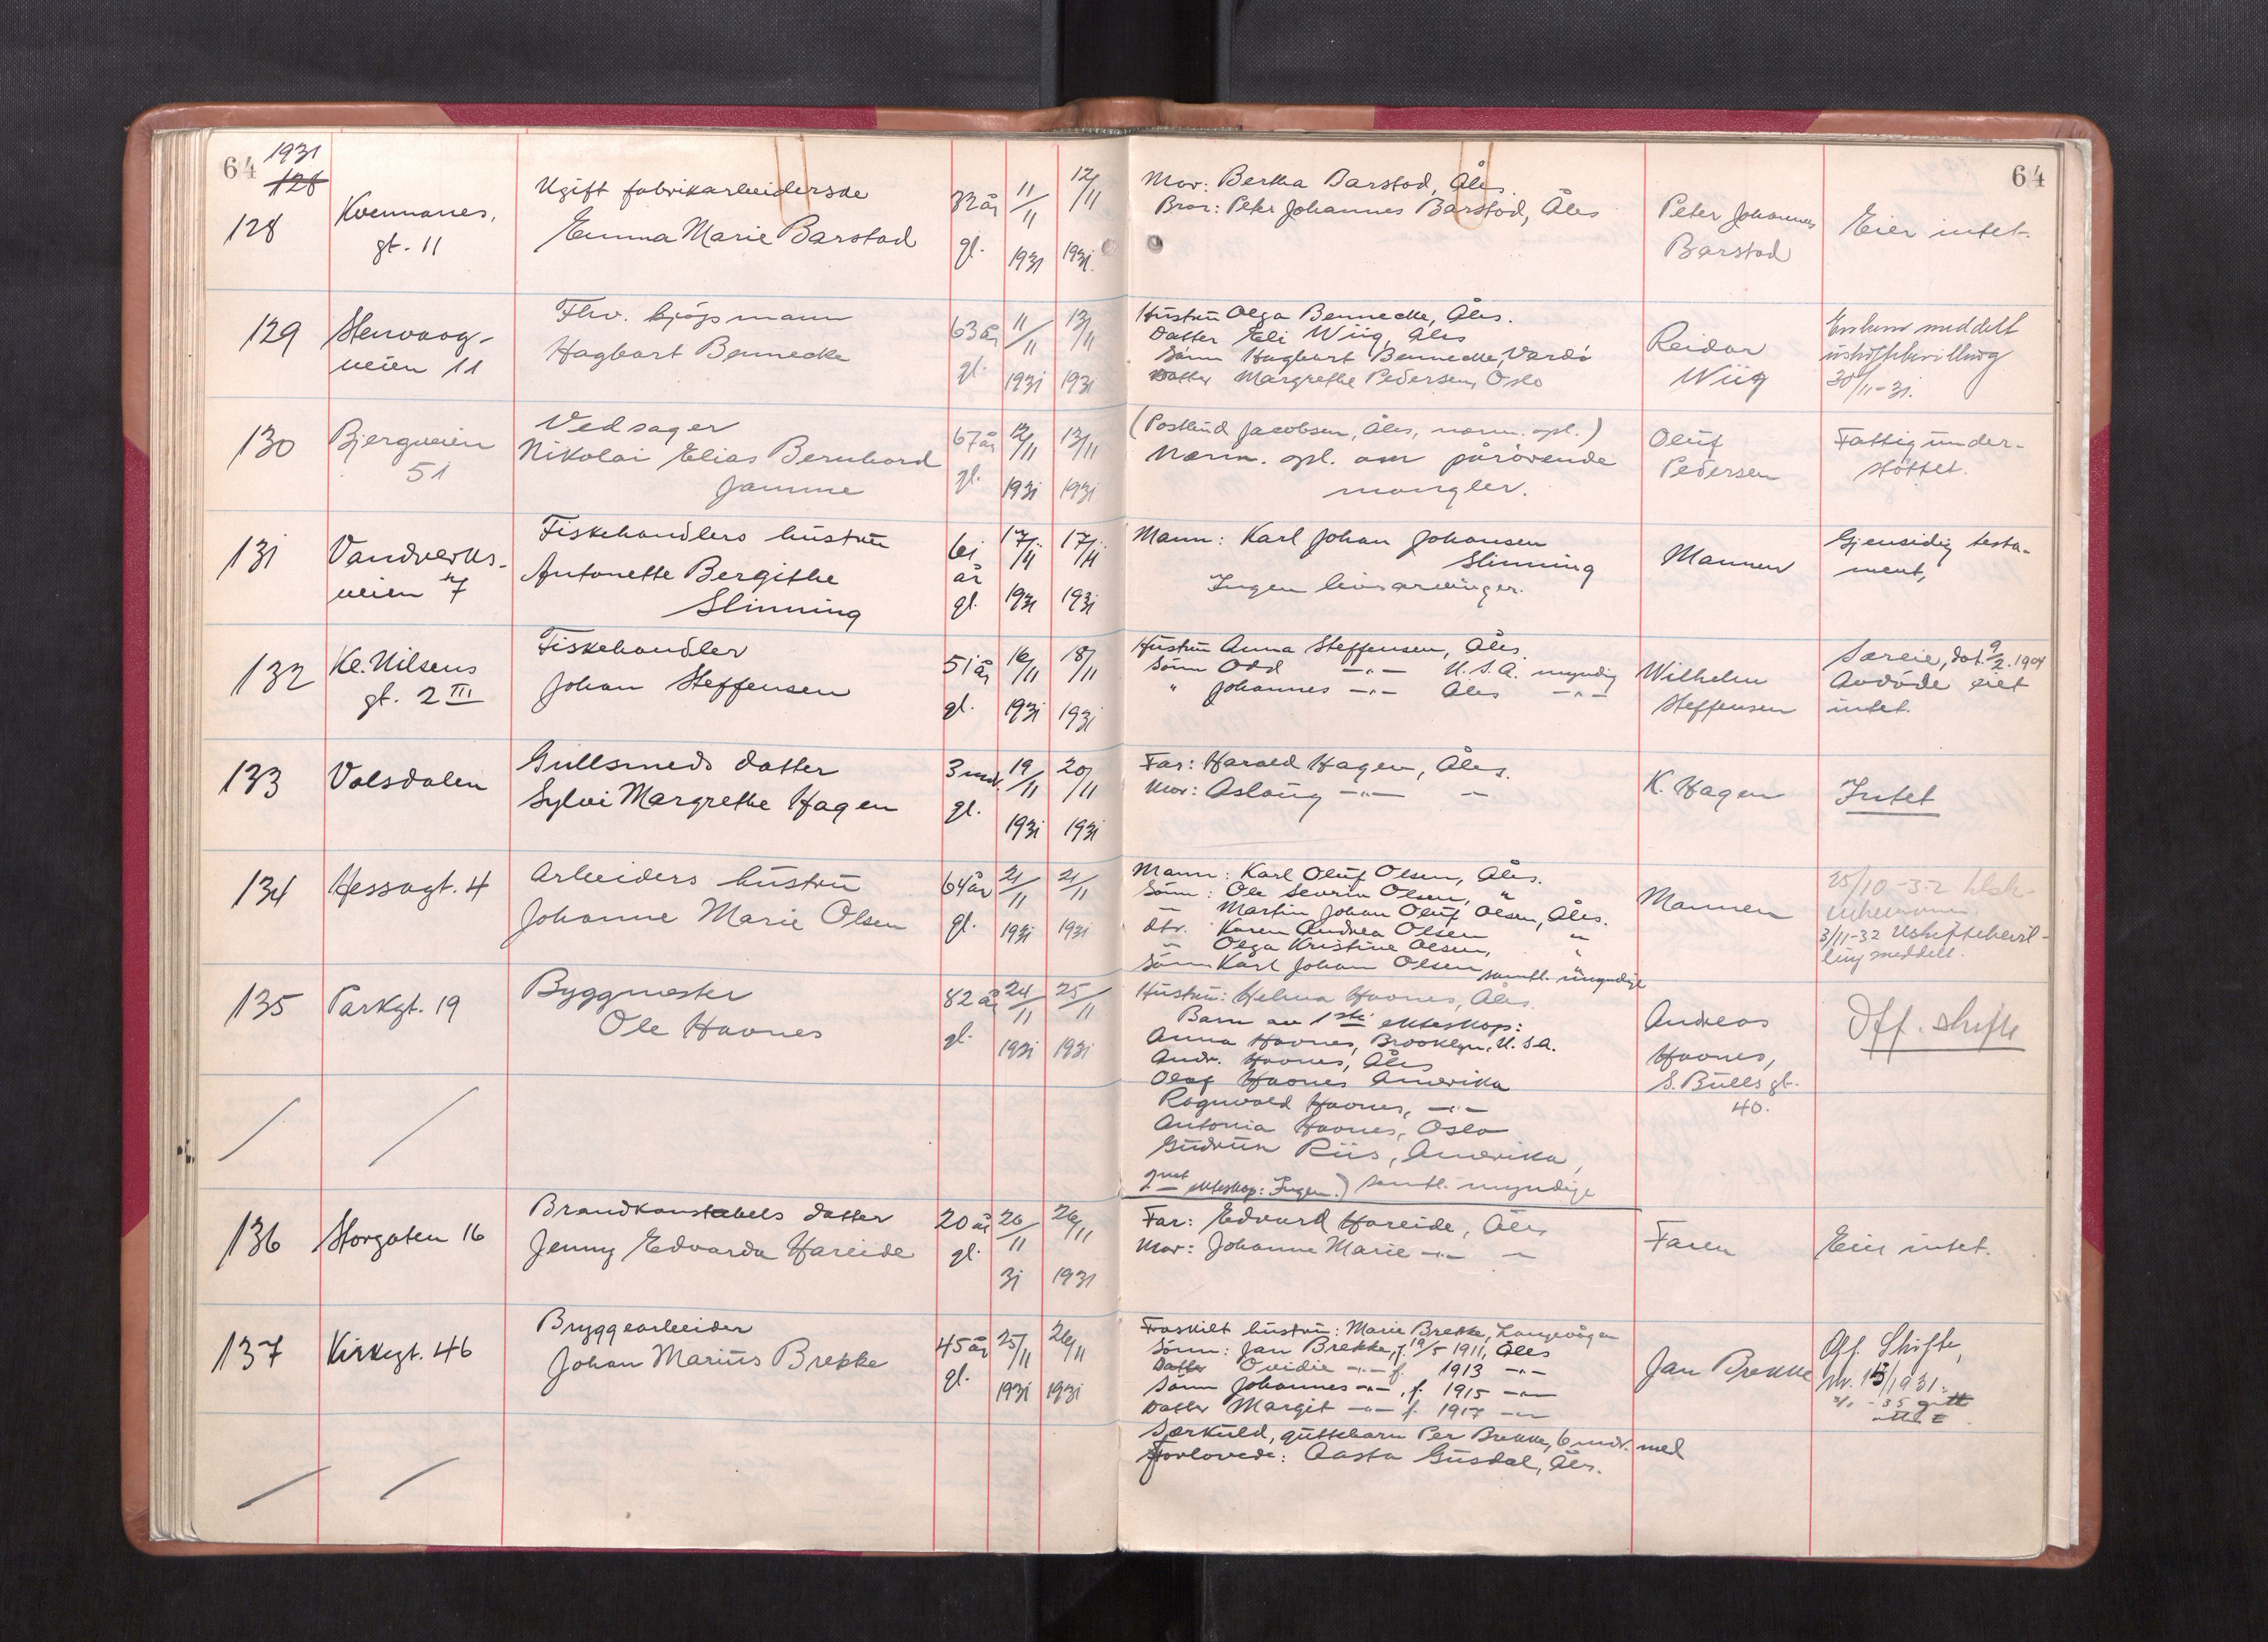 64 1931
126
128 Kvennanes,
gt. 11
Ugift fabrikarbeiderske
Emma Marie Barstad
32 år gl. 11/11 1931 12/11 1931.
Mor: Bertha Barstad, Åles.
Bror: Peter Johannes Barstad, Åles
Peter Johannes
Barstad
Eier intet.
64
129 Stenvaag-
veien 11
Fhv.
Hagbart Bennecke
63 år gl. 11/11 1931 13/11 1931
Hustru Olga Bennecke, Åles.
Datter Eli Wiig, Åles
Sønn Hagbart Bennecke, Vardø
Datter Margrethe Pedersen, Oslo
Reidar
Wiig
Enken meddelt
uskiftebevilling
30/11-31.
130 Bjergveien
51
Vedsager
Nikolai Elias Bernhard
Jamne
67 år gl. 12/11 1931 13/11 1931
(Postbud Jacobsen, Åles, nærm. opl.)
Nærm. opl. om pårørende
mangler.
Oluf
Pedersen
Fattigunder-
støttet.
131 Vandverks-
veien 7
Fiskehandlers hustru
Antonette Bergithe
Slinning
61 år gl. 17/11 1931 17/11 1931
Mann: Karl Johan Johansen
Slinning
Ingen livsarvinger.
Mannen
Gjensidig testa-
ment,
132 Kl. Nilsens
gt. 2 III
Fiskehandler
Johan Steffensen
51 år gl. 16/11 1931 18/11 1931
Hustru Anna Steffensen, Åles.
Sønn Odd —"— U.S.A. myndig
" Johannes —"— Åles —"—
Wilhelm
Steffensen
Særeie, dat. 9/2. 1904
Avdøde eiet
intet.
133 Volsdalen
Gullsmeds datter
Sylvi Margrethe Hagen
3 mdr. gl. 19/11 1931 20/11 1931
Far: Harald Hagen, Åles.
Mor: Aslaug —"— —
K. Hagen
Intet
134 Hessagt. 4
Arbeiders hustru
Johanne Marie Olsen
64 år gl. 21/11 1931 21/11 1931
Mann: Karl Oluf Olsen, Åles.
Sønn: Ole Severin Olsen, "
— Martin Johan Oluf Olsen, Åles.
dtr. Karen Andrea Olsen "
— Olga Kristine Olsen, "
Sønn Karl Johan Olsen " samtl. umyndige
Mannen
25/10-32
3/11-32 Uskiftebevil-
ling meddelt.
135 Parkgt. 19
Byggmester
Ole Havnes
82 år gl. 24/11 1931 25/11 1931
Hustru: Helma Havnes, Åles.
Barn av 1ste ekteskap:
Anna Havnes, Brooklyn, U.S.A.
Andr. Havnes, Åles
Olaf Havnes Amerika
Ragnvald Havnes, —"—
Antonia Havnes, Oslo
Gudrun Riis, Amerika,
2net ekteskap: Ingen.) samtl. myndige
Andreas
Havnes,
S. Bulls gt.
40.
Off. skifte
136 Storgaten 16
Brandkonstabels datter
Jenny Edvarda Hareide
20 år gl. 26/11 31 26/11 1931
Far: Edvard Hareide, Åles
Mor: Johanne Marie —"— —
Faren
Eier intet.
137 Kirkegt. 46
Bryggearbeider
Johan Marius Brekke
45 år gl. 25/11 1931 26/11 1931
Fraskilt hustru: Marie Brekke, Langevågen
Sønn: Jan Brekke, f. 19/5 1911, Åles
Datter Ovidie —"— f. 1913 —"—
Sønn Johannes —"—, f. 1915 —"—
Datter Margit —"— f. 1917 —"—
Særkuld, guttebarn Per Brekke, 6 mdr. med
Forlovede: Aasta Gusdal, Åles.
Jan Brekke
Off. Skifte,